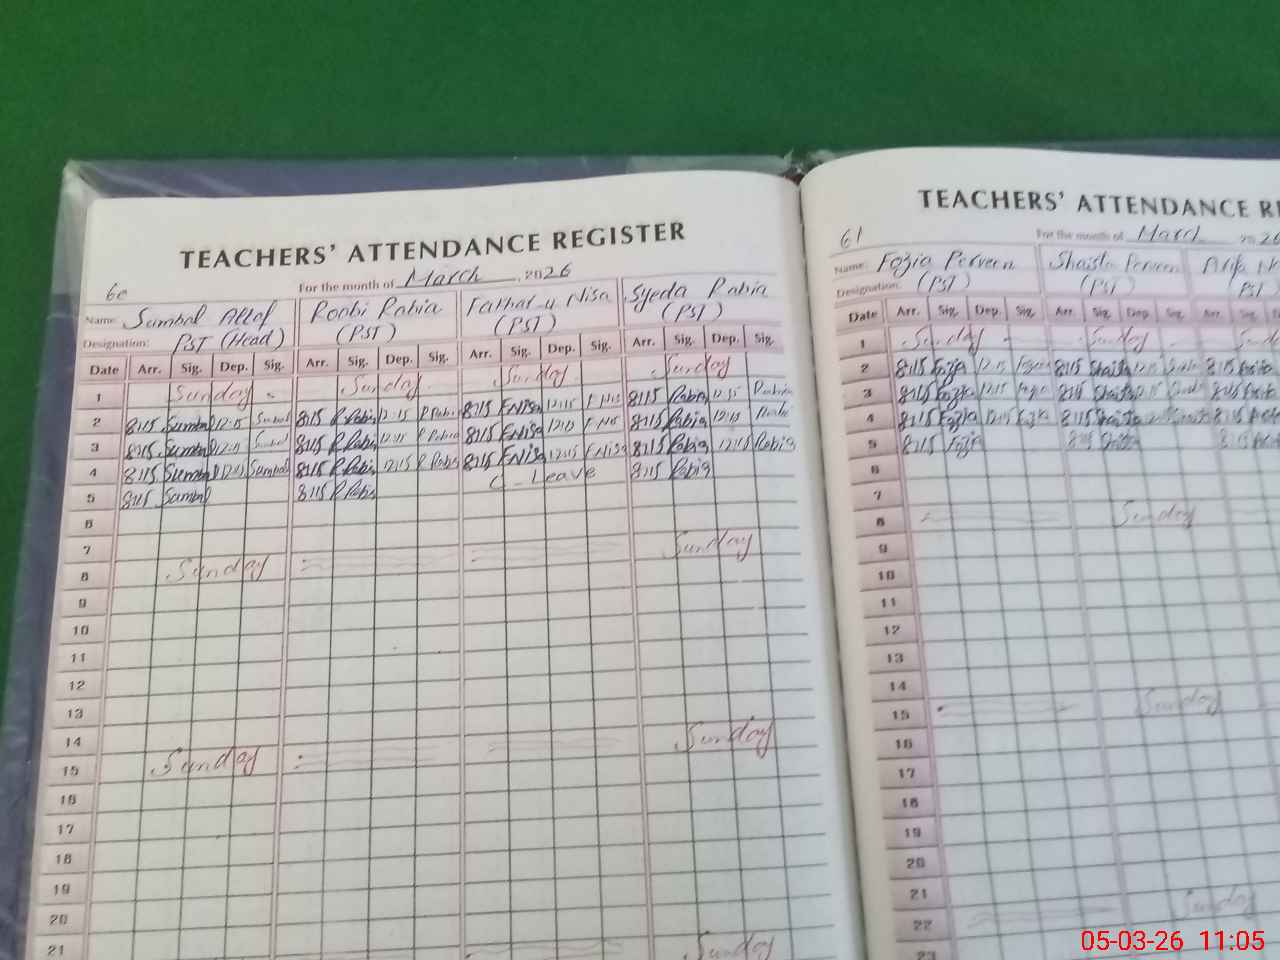 TEACHERS' ATTENDANCE REGISTER
60
For the month of March 2026
Name: Sumbal Altaf Roobi Rabia Farhat u Nisa Syeda Rabia
Designation: PST (Head) (PST) (PST) (PST)
Date Arr. Sig. Dep. Sig. Arr. Sig. Dep. Sig. Arr. Sig. Dep. Sig. Arr. Sig. Dep. Sig.
1 Sunday Sunday Sunday Sunday
2 8:15 Sumbal 12:15 Sumbal 8:15 R Rabia 12:15 R Rabia 8:15 F.Nisa 12:15 F Nis 8:15 Rabia 12:15 Rabia
3 8:15 Sumbal 12:15 Sumbal 8:15 R Rabia 12:15 R Rabia 8:15 F.Nisa 12:15 F Nis 8:15 Rabia 12:15 Rabia
4 8:15 Sumbal 12:15 Sumbal 8:15 R Rabia 12:15 R Rabia 8:15 F.Nisa 12:15 F Nisa 8:15 Rabia 12:15 Rabia
5 8:15 Sumbal 8:15 R Rabia C - Leave 8:15 Rabia
6
7
8 Sunday Sunday
9
10
11
12
13
14
15 Sunday Sunday
16
17
18
19
20
21
Sunday
TEACHERS' ATTENDANCE RE
61
For the month of March 2026
Name: Fozia Perveen Shaista Perveen
Designation: (PST) (PST) (PST)
Date Arr. Sig. Dep. Sig. Arr. Sig. Dep. Sig. Arr. Sig.
1 Sunday Sunday
2 8:15 Fozia 12:15 Fozia 8:15 Shaista 12:15 8:15
3 8:15 Fozia 12:15 Fozia 8:15 Shaista 12:15 8:15
4 8:15 Fozia 12:15 Fozia 8:15 Shaista 8:15
5 8:15 Fozia 8:15 Shaista 8:15
6
7
8 Sunday
9
10
11
12
13
14
15 Sunday
16
17
18
19
20
21
22 Sunday
23
05-03-26 11:05